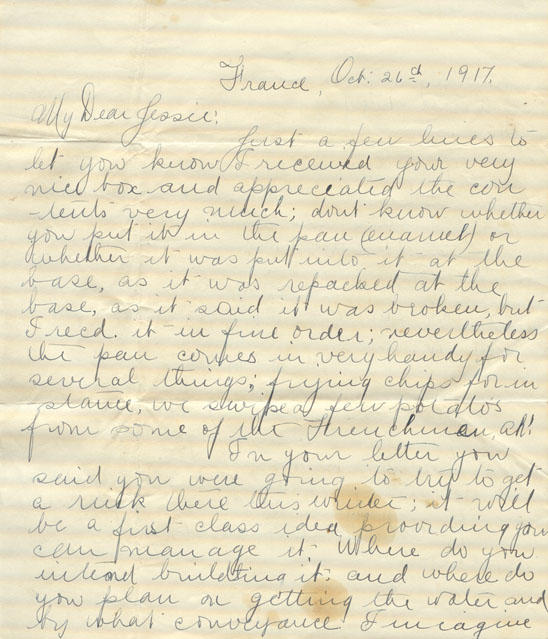 France, Oct. 26th, 1917.
My Dear Jessie:
Just a few lines to
let you know I received your very
nice box and appreciated the con
-tents very much; dont know whether
you put it in the pan (enamel) or
whether it was put into it at the
base, as it was repacked at the
base, as it said it was broken, but
I recd. it in fine order; nevertheless
the pan comes in very handy for
several things; frying chips for in
stance, we swipe a few potatos
from some of the Frenchmen, ah!
In your letter you
said you were going to try to get
a rink there this winter; it will
be a first class idea providing you
can manage it. Where do you
intend building it. and where do
you plan on getting the water and
by what conveyance. I imagine